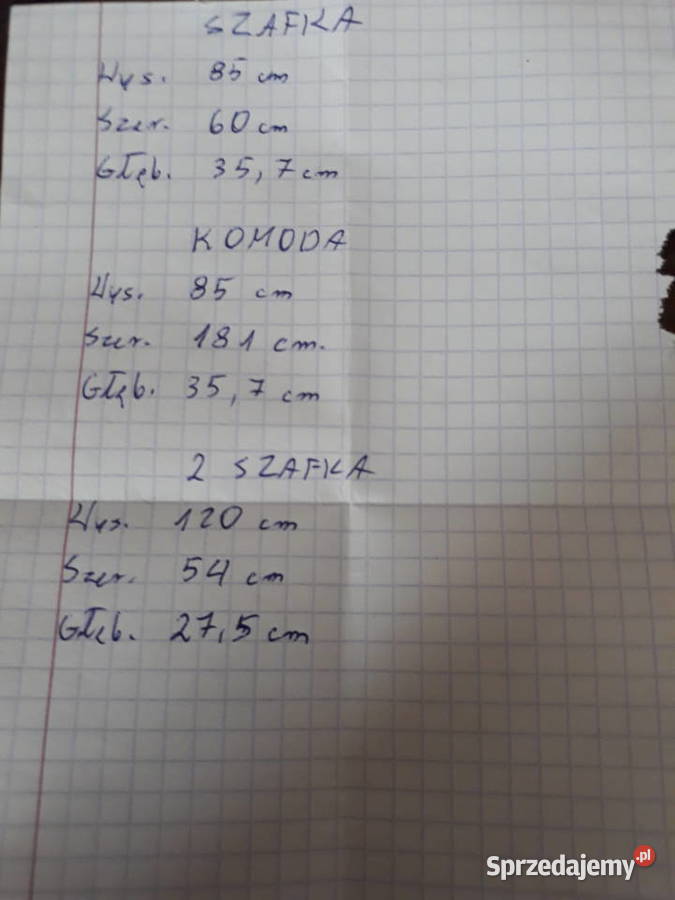 SZAFKA
Wys. 85 cm
Szer. 60 cm
Głęb. 35,7 cm
KOMODA
Wys. 85 cm
Szer. 181 cm.
Głęb. 35,7 cm
2 SZAFKA
Wys. 120 cm
Szer. 54 cm
Głęb. 27,5 cm
Sprzedajemy.pl